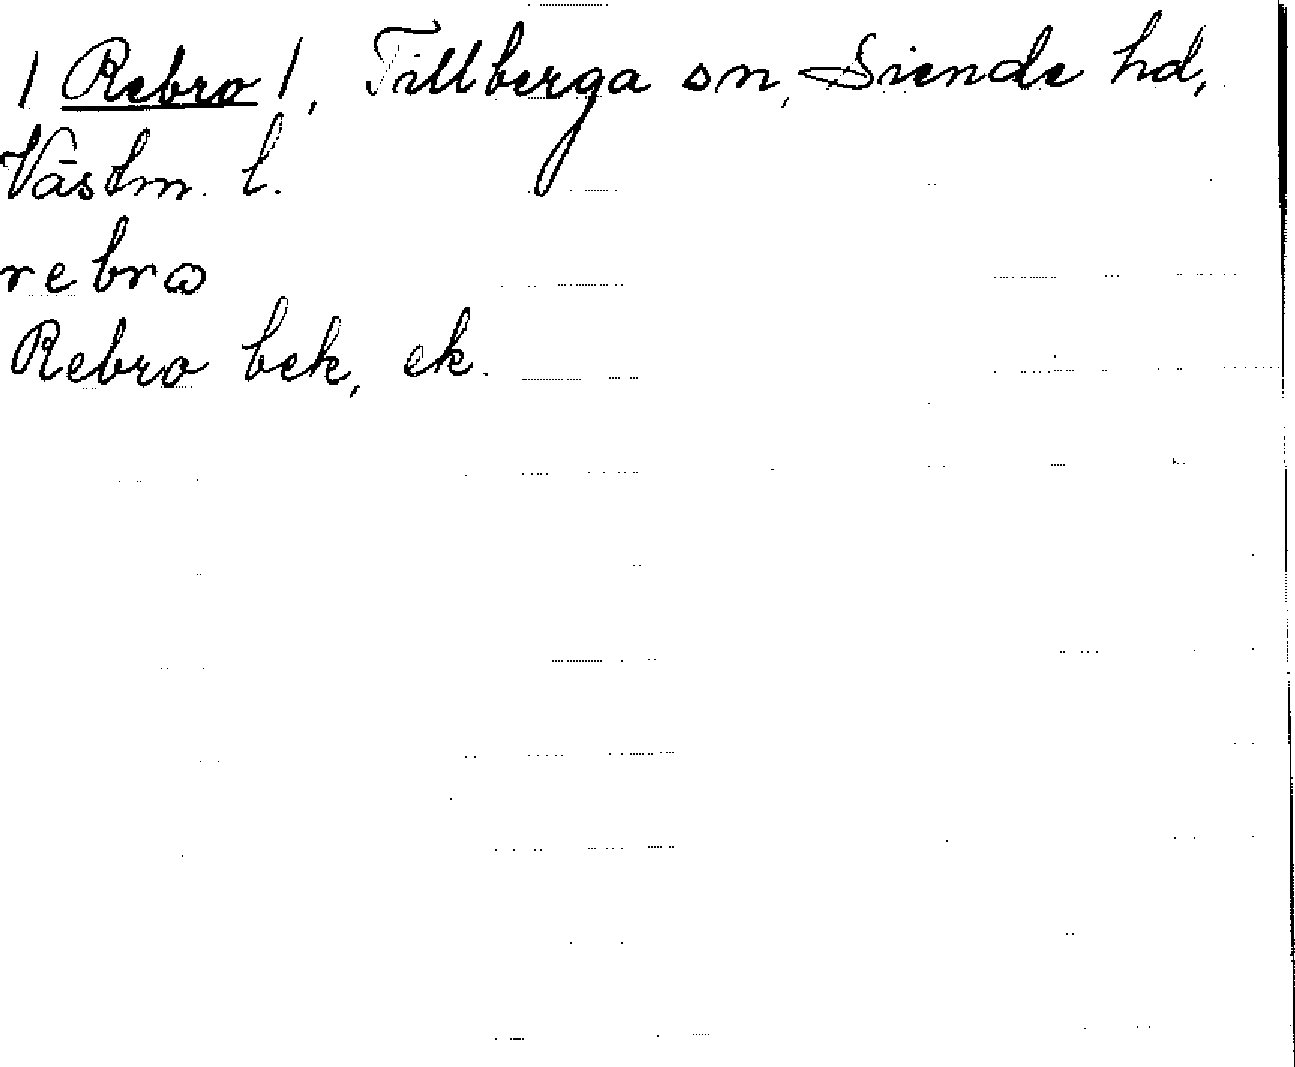 / Rebro /, Tillberga sn, Siende hd,
Västm. l.
rebrω
Rebro bek, ek.